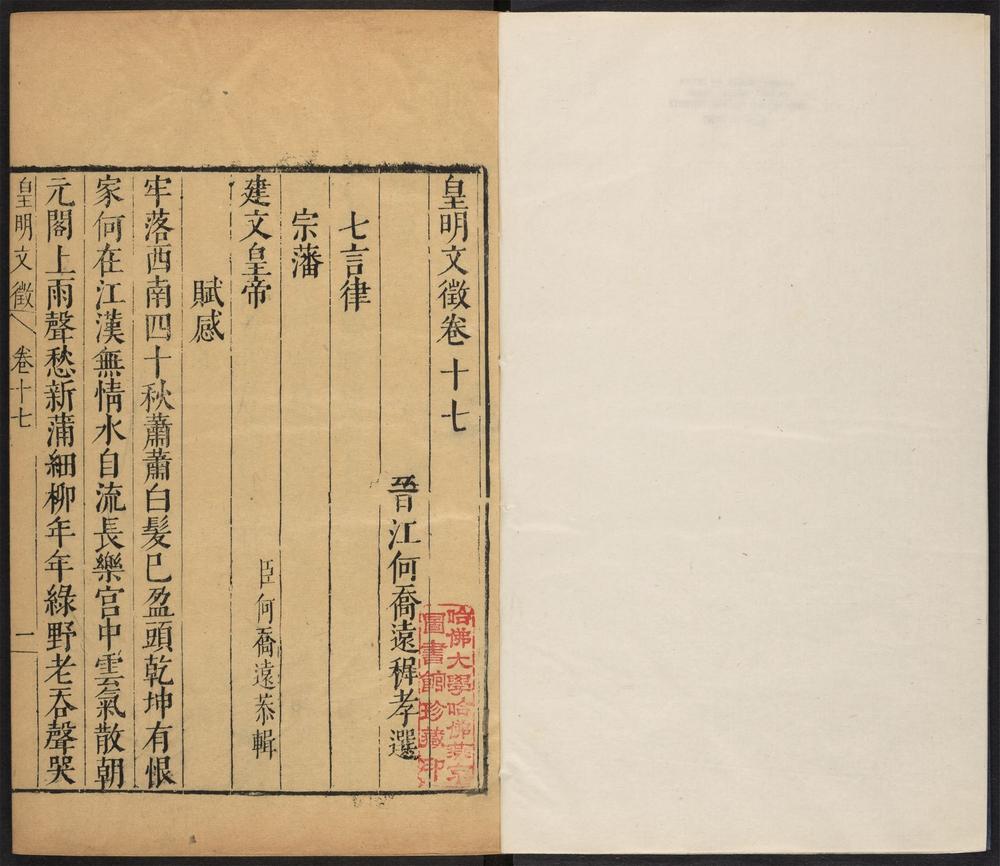 皇明文徵卷十七
晉江何喬遠穉孝選
七言律
宗藩
建文皇帝
臣何喬遠恭輯
賦感
牢落西南四十秋蕭蕭白髮已盈頭乾坤有恨
家何在江漢無情水自流長樂宮中雲氣散朝
元閣上雨聲愁新蒲細柳年年綠野老吞聲哭
皇明文徵
卷十七
一
哈佛大學哈佛燕京
圖書館珍藏印